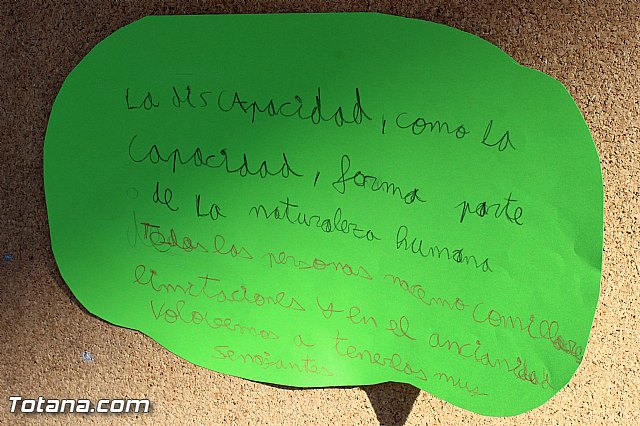 La discapacidad, como la
capacidad, forma parte
de la naturaleza humana
Todas las personas
limitaciones y en el ancianidad
volvemos a tenerlas muy
semejantes
Totana.com